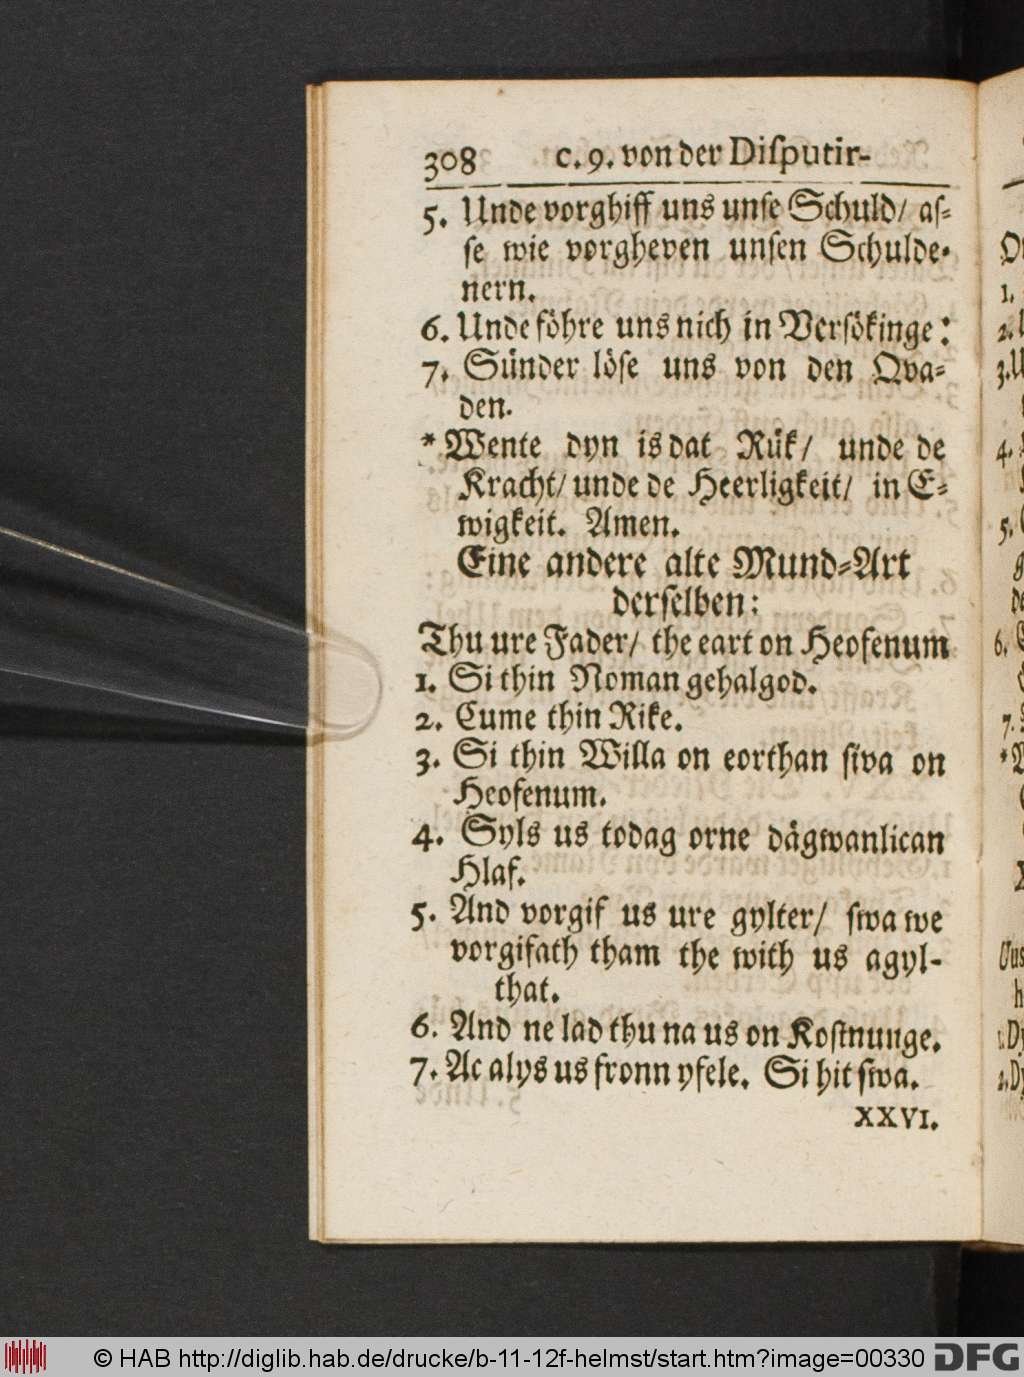 308 c. 9. von der Disputir-
5. Unde vorghiff uns unse Schuld/ as-
se wie vorgheven unsen Schulde-
nern.
6. Unde föhre uns nich in Versökinge:
7. Sünder löse uns von den Qva-
den.
* Wente dyn is dat Rük/ unde de
Kracht/ unde de Heerligkeit/ in E-
wigkeit. Amen.
Eine andere alte Mund-Art
derselben:
Thu ure Fader/ the eart on Heofenum
1. Si thin Noman gehalgod.
2. Cume thin Rike.
3. Si thin Willa on eorthan siva on
Heofenum.
4. Syls us todag orne dägwanlican
Hlaf.
5. And vorgif us ure gylter/ swa we
vorgifath tham the with us agyl-
that.
6. And ne lad thu na us on Kostnunge.
7. Ac alys us fronn yfele. Si hit swa.
XXVI.
© HAB http://diglib.hab.de/drucke/b-11-12f-helmst/start.htm?image=00330 DFG